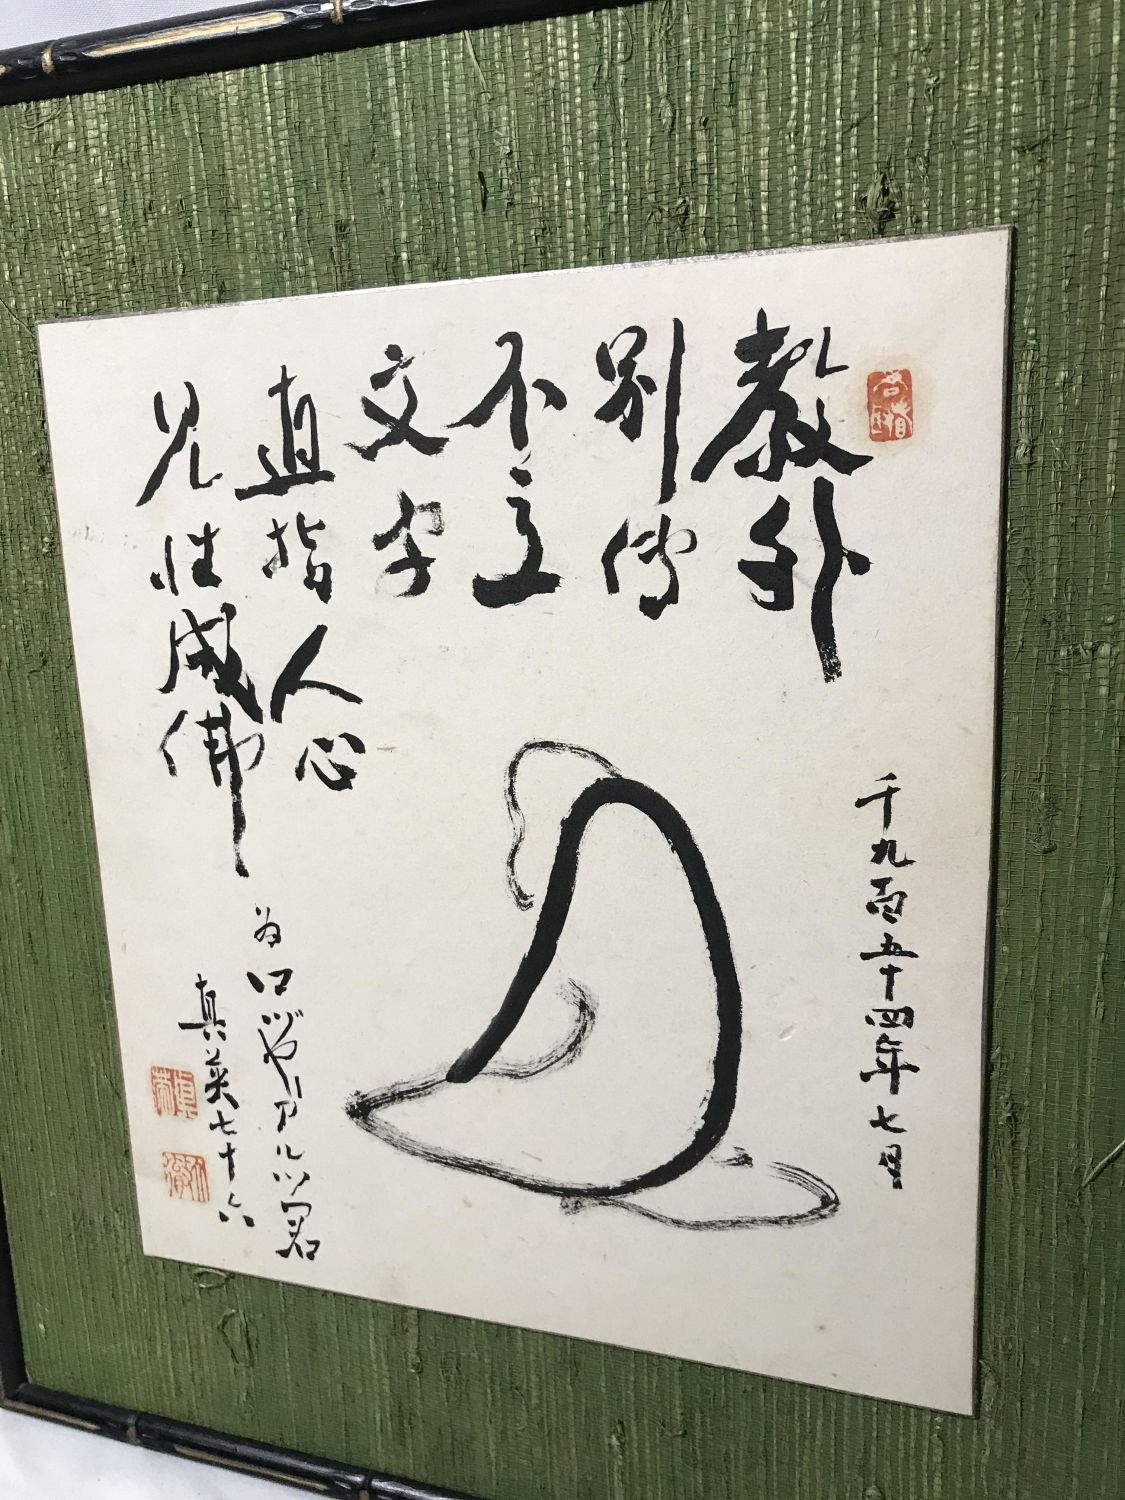 教外
別傳
不立
文字
直指人心
見性成佛
千九百五十四年七月
為ロバヤアルソ君
真英七十六